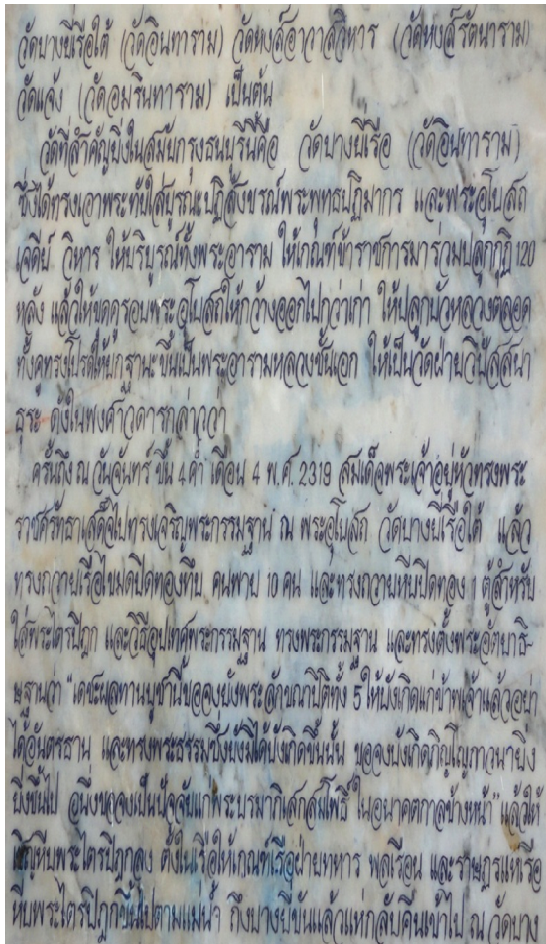 วัดบางยี่เรือใต้ (วัดอินทาราม) วัดหงส์อาวาสวิหาร (วัดหงส์รัตนาราม)
วัดแจ้ง (วัดอมรินทาราม) เป็นต้น
วัดที่สำคัญยิ่งในสมัยกรุงธนบุรีนี้คือ วัดบางยี่เรือ (วัดอินทาราม)
ซึ่งได้ทรงเอาพระทัยใส่บูรณะปฏิสังขรณ์พระพุทธปฏิมากร และพระอุโบสถ
เจดีย์ วิหาร ให้บริบูรณ์ทั้งพระอาราม ให้เกณฑ์ข้าราชการมาร่วมปลูกกุฏิ 120
หลัง แล้วให้ขุดคูรอบพระอุโบสถให้กว้างออกไปกว่าเก่า ให้ปลูกบัวหลวงตลอด
ทั้งคูทรงโปรดให้ยกฐานะขึ้นเป็นพระอารามหลวงชั้นเอก ให้เป็นวัดฝ่ายวิปัสสนา
ธุระ ดังในพงศาวดารกล่าวว่า
ครั้นถึง ณ วันจันทร์ ขึ้น 4 ค่ำ เดือน 4 พ.ศ. 2319 สมเด็จพระเจ้าอยู่หัวทรงพระ
ราชศรัทธาเสด็จไปทรงเจริญพระกรรมฐาน ณ พระอุโบสถ วัดบางยี่เรือใต้ แล้ว
ทรงถวายเรือโขมดปิดทองทึบ คนพาย 10 คน และทรงถวายหีบปิดทอง 1 ตู้สำหรับ
ใส่พระไตรปิฎก และวิธีอุปเทศพระกรรมฐาน ทรงพระกรรมฐาน และทรงตั้งพระอัตยาธิ-
ษฐานว่า "เดชะผลทานบูชานี้ขอจงยังพระลักขณาปิติทั้ง 5 ให้บังเกิดแก่ข้าพเจ้าแล้วอย่า
ได้อันตรธาน และทรงพระธรรมซึ่งยังมิได้บังเกิดขึ้นนั้น ขอจงบังเกิดภิญโญภาวนายิ่ง
ยิ่งขึ้นไป อนึ่งขอจงเป็นปัจจัยแก่พระบรมาภิเสกสมโพธิ์ ในอนาคตกาลข้างหน้า" แล้วให้
เชิญหีบพระไตรปิฎกลง ตั้งในเรือให้เกณฑ์เรือฝ่ายทหาร พลเรือน และราษฎรแห่เรือ
หีบพระไตรปิฎกขึ้นไปตามแม่น้ำ ถึงบางยี่ขันแล้วแห่กลับคืนเข้าไป ณ วัดบาง